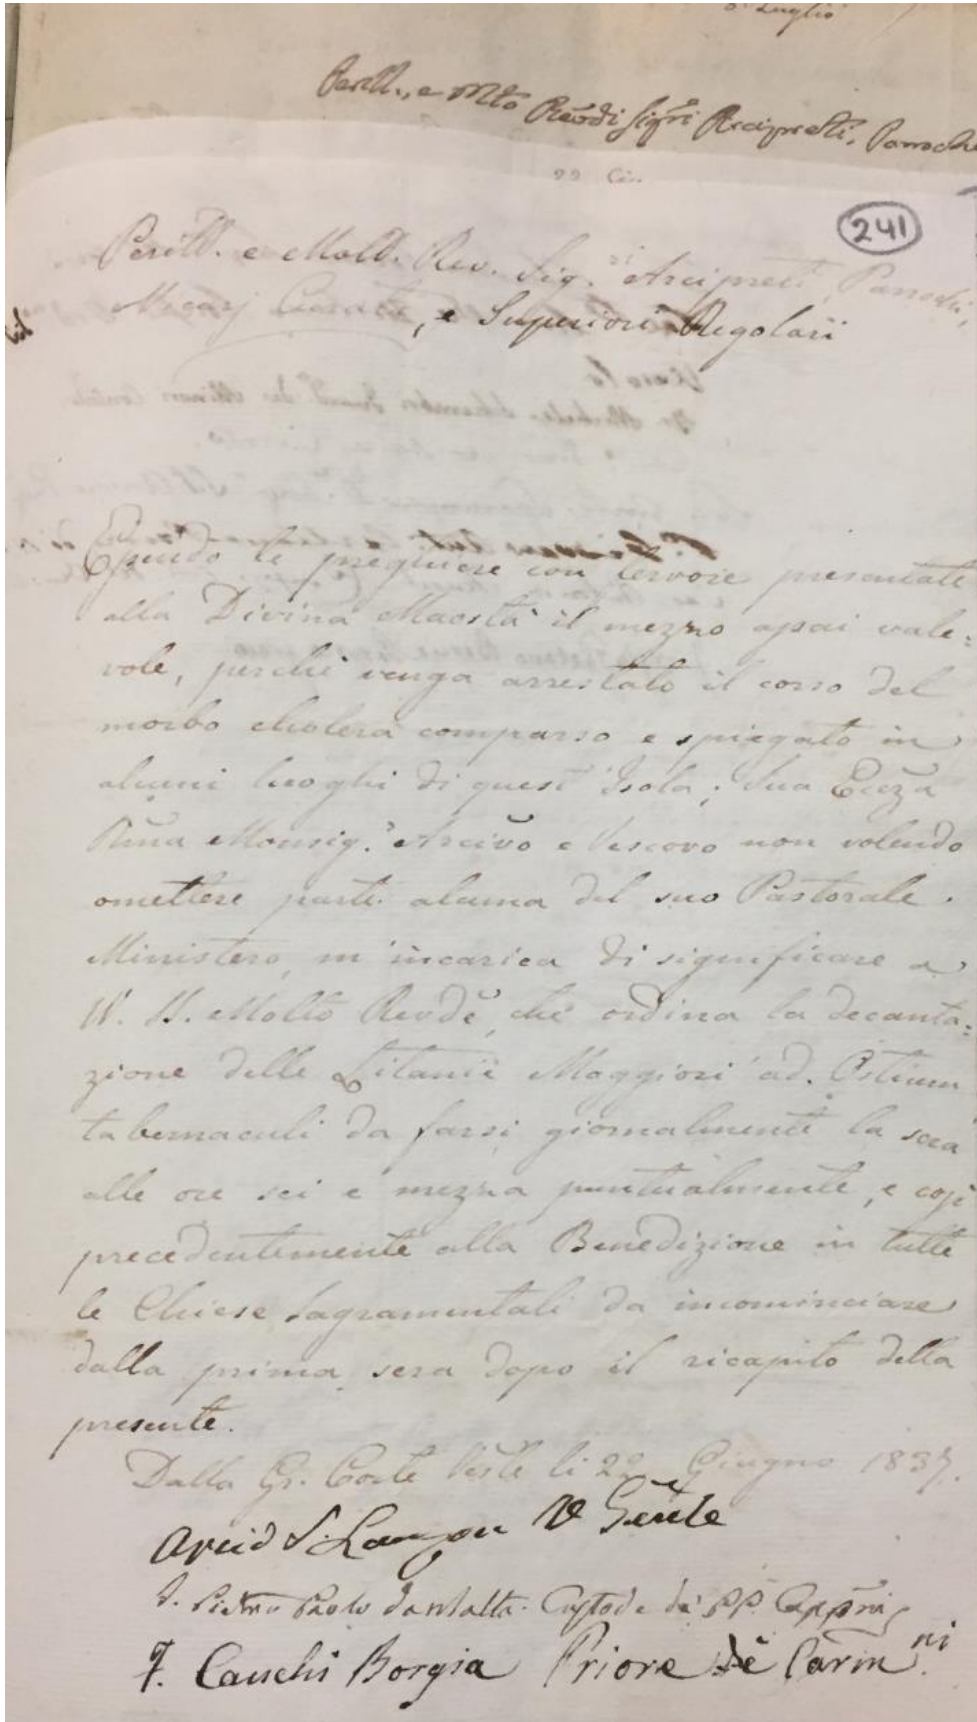 Luglio
Perill. e Mto Revdi Sigri Arcipreti, Parochi
22 Giu.
241
Perill. e Molt. Rev. Sig.ri Arcipreti, Parochi,
e Superiori Regolari
Essendo le preghiere con fervore presentate
alla Divina Maestà il mezzo assai vale:
vole, perchè venga arrestato il corso del
morbo cholera comparso e spiegato in
alcuni luoghi di quest'Isola; Sua Eccza
Rma Monsig.r Arcivo e Vescovo non volendo
omettere parte alcuna del suo Pastorale
Ministero, m'incarica di significare a
VV. SS. Molto Revde, che ordina la decanta:
zione delle Litanie Maggiori ad Ostium
tabernaculi da farsi giornalmente la sera
alle ore sei e mezza puntualmente, e così
precedentemente alla Benedizione in tutte
le Chiese Sagramentali da incominciare
dalla prima sera dopo il ricapito della
presente.
Dalla Gr. Corte Vesle li 22 Giugno 1837.
Arcid S. Lanzon V Genle
F. Pietro Paolo da Malta Custode de' PP. Cappni
F. Cauchi Borgia Priore de' Carmni